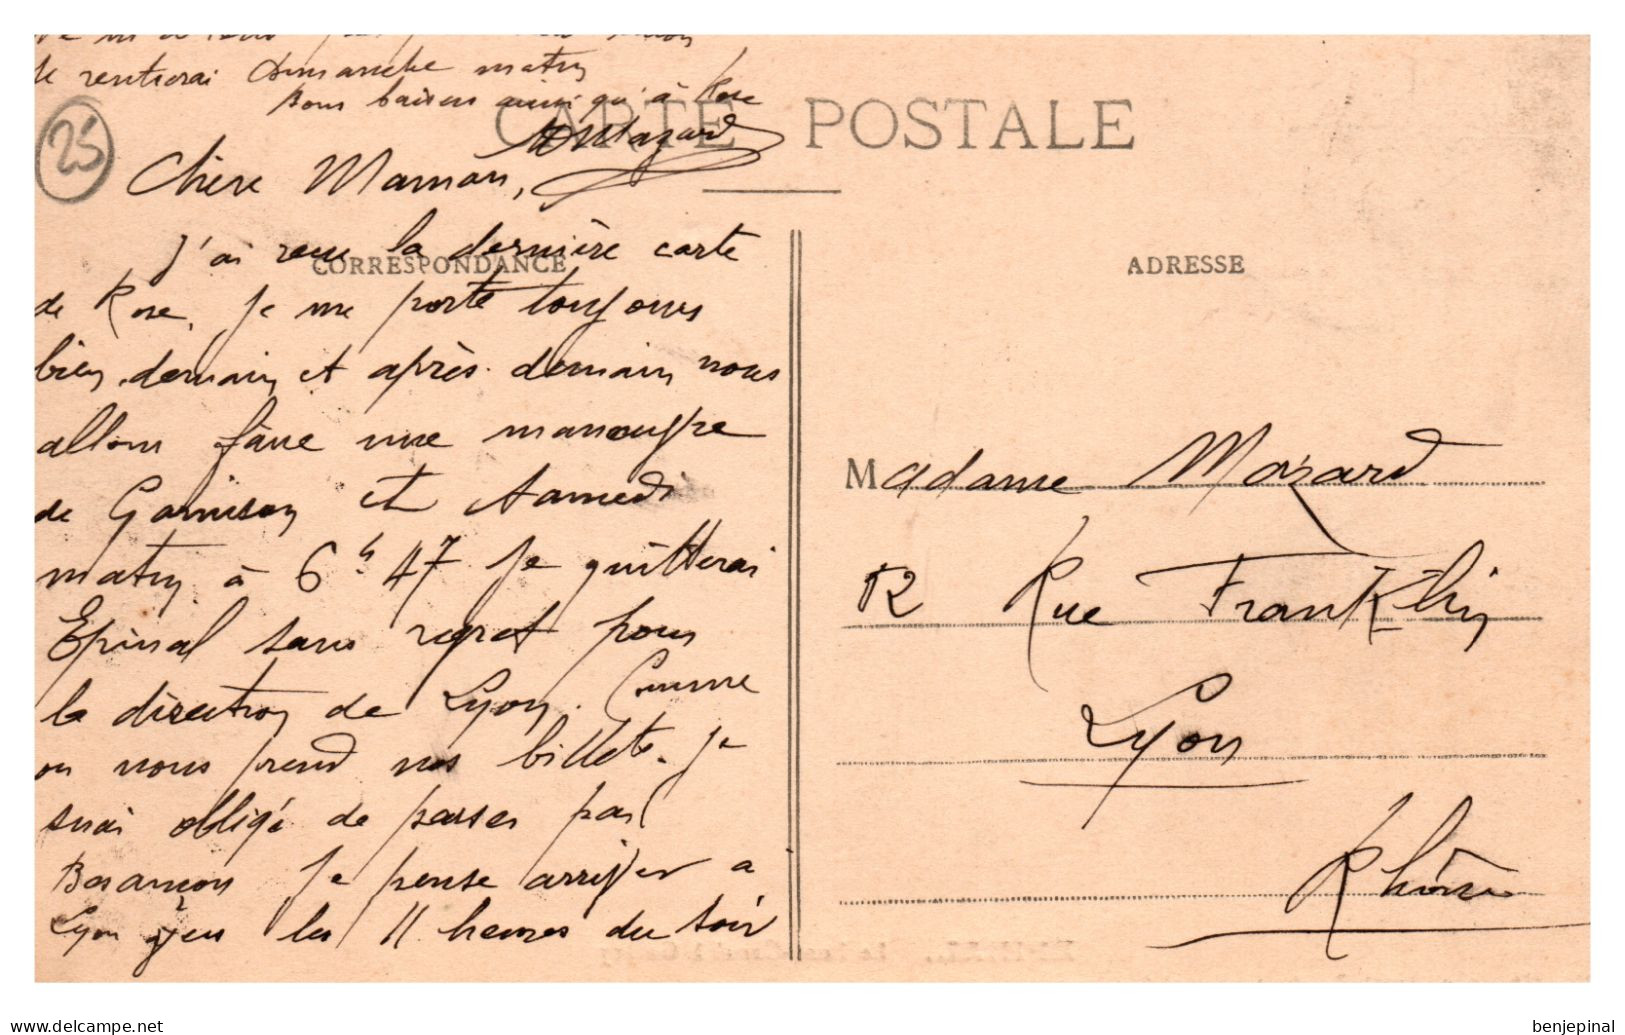 je rentrerai Dimanche matin
Bons baisers ainsi qu'à Rose
Mazard
CARTE POSTALE
25
Chère Maman,
J'ai reçu la dernière carte
CORRESPONDANCE
de Rose. Je me porte toujours
bien, demain et après-demain nous
allons faire une manoeuvre
de Garnison et Samedi
matin à 6h 47 je quitterai
Epinal sans regret pour
la direction de Lyon. Comme
on nous prend nos billets. Je
suis obligé de passer par
Besançon Je pense arriver a
Lyon vers les 11 heures du soir
ADRESSE
Madame Mazard
12 Rue Franklin
Lyon
Rhône
www.delcampe.net
benjepinal